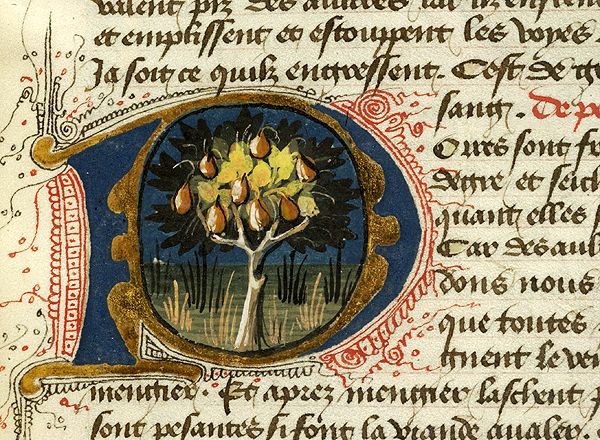 valent piz des aultres car ilz
et emplissent et estouppent les voyes.
Ja soit ce quilz engressent. Cest de
sang. De
Oires sont fr
degre et seich
quant elles
Car des aul
dons nous
que toutes
gnent le
mengier. Et aprez mengier laschent
sont pesantes si font la viande aualer.